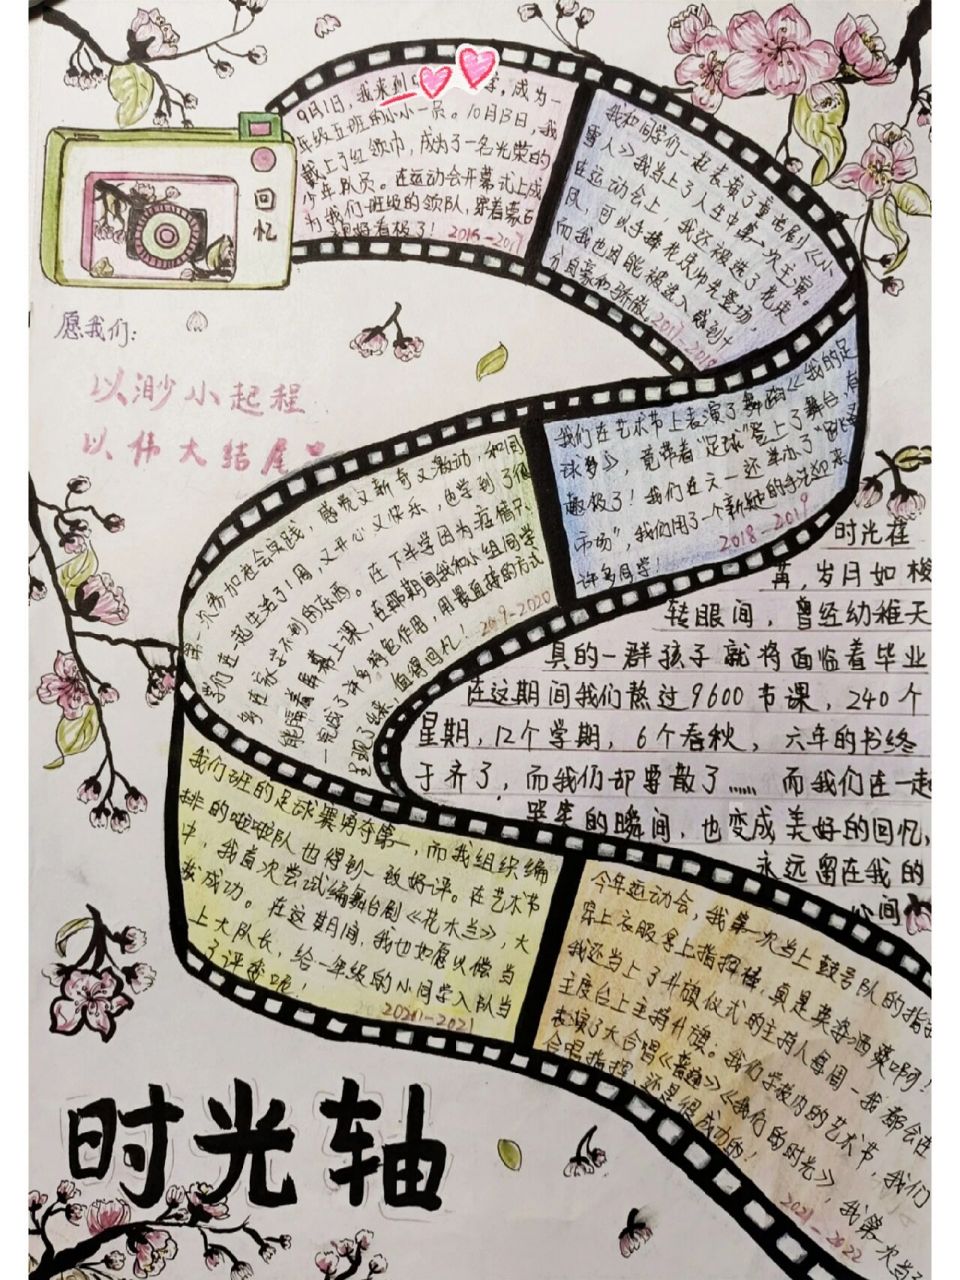 回忆
9月1日,我来到学,成为一
年级五班的小小一员。10月13日,我
戴上了红领巾,成为了一名光荣的
少年队员。在运动会开幕式上成
为我们班级的领队,穿着蒙古
好看极了!2016-2017
我和同学们一起表演了童话剧《小
雪人》我当上了人生中第一次主演。
在运动会上,我还被选了花束
队,可以手捧花庆师先登场,
而我也因能被选入感到十
分自豪和骄傲。2017-2018
愿我们:
以渺小起程
以伟大结尾
我们在艺术节上表演了舞蹈《我的足
球梦》,竟带着“足球”登上了舞台,有
趣极了!我们在六一还举办了“跳蚤
市场”,我们用了一个新她的手法迎来
许多同学!2018-2019
第一次参加社会实践,感觉又新奇又激动,和同
学们在一起生活了1周,又开心又快乐,也学到了很
多在家学不到的东西。在下半学因为疫情只
能隔着屏幕上课,在那期间我和小组同学
一完成了许多钩包作用,用最直接的方式
呈现了出来,值得回忆!2019-2020
时光荏
苒,岁月如梭
转眼间,曾经幼稚天
真的一群孩子就将面临着毕业
在这期间我们熬过9600节课,240个
星期,12个学期,6个春秋,六年的书终
于齐了,而我们却要散了……而我们在一起
哭笑的瞬间,也变成美好的回忆,
永远留在我的
心间
我们班的足球赛勇夺第一,而我组织编
排的啦啦队也得到一致好评。在艺术节
中,我首次尝试编舞台剧《花木兰》,大
获成功。在这期间,我也如愿以偿当
上大队长,给一年级的小同学入队当
了评委呢!2020-2021
今年运动会,我第一次当上鼓号队的指
穿上衣服拿上指挥棒,真是英姿洒爽啊!
我还当上了升旗仪式的主持人每周一我都会在
主席台上主持升旗。我们学校内的艺术节,我们
表演了大合唱《》《我们的时光》,我第一次当
合唱指挥,还是很成功的!2021-2022
时光轴